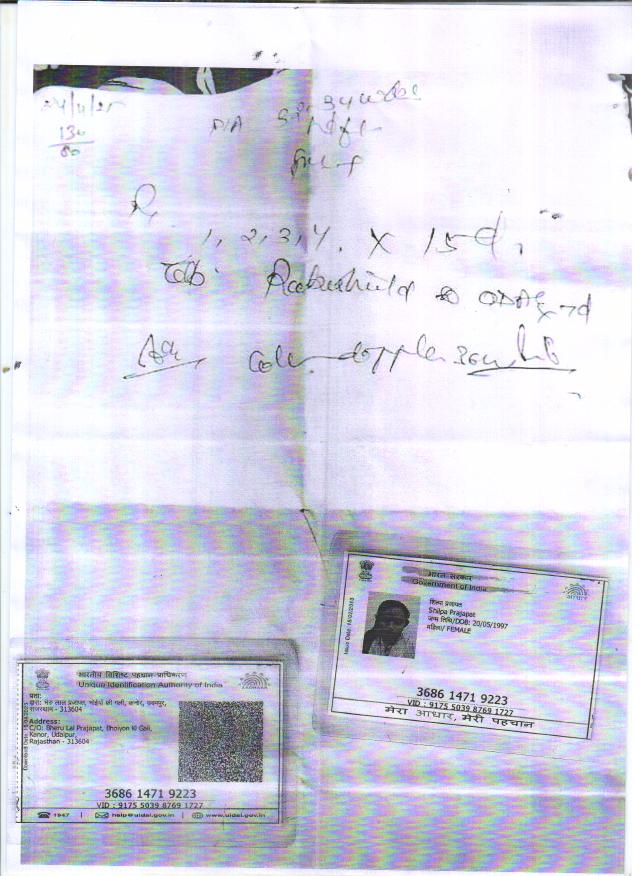 24/4/25
130
80
P/A 34 weeks
Rx
1, 2, 3, 4. X 15 d,
Tab. X 7d
Adv Color doppler
भारत सरकार
Government of India
Issue Date:
शिल्पा प्रजापत
Shilpa Prajapat
जन्म तिथि/DOB: 20/05/1997
महिला/ FEMALE
3686 1471 9223
VID : 9175 5039 8769 1727
मेरा आधार, मेरी पहचान
भारतीय विशिष्ट पहचान प्राधिकरण
Unique Identification Authority of India
AADHAAR
पता:
राजस्थान - 313604
Address:
C/O: Bheru Lal Prajapat, Bhoiyon ki Gali,
Kanor, Udaipur,
Rajasthan - 313604
3686 1471 9223
VID : 9175 5039 8769 1727
1947 | help@uidai.gov.in | www.uidai.gov.in